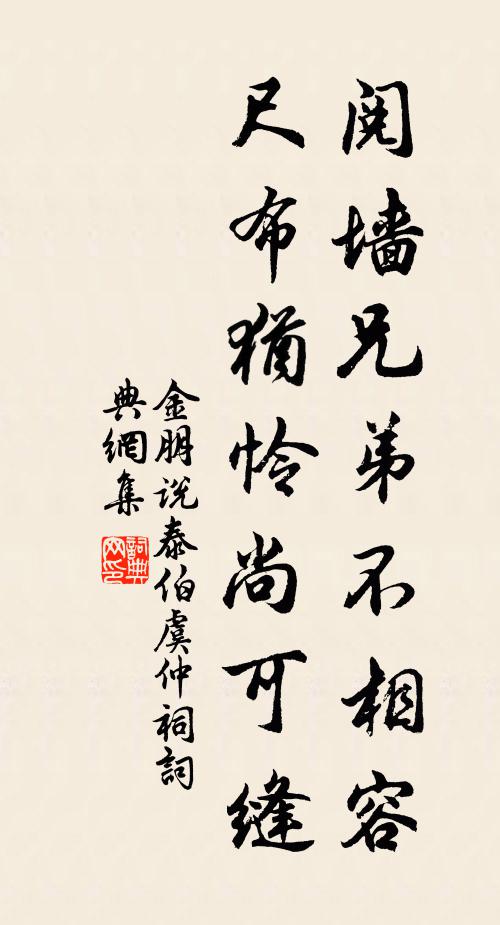 阋墙兄弟不相容
尺布猶怜尚可縫
金朋说泰伯虞仲祠詞
典網集
詞典网印